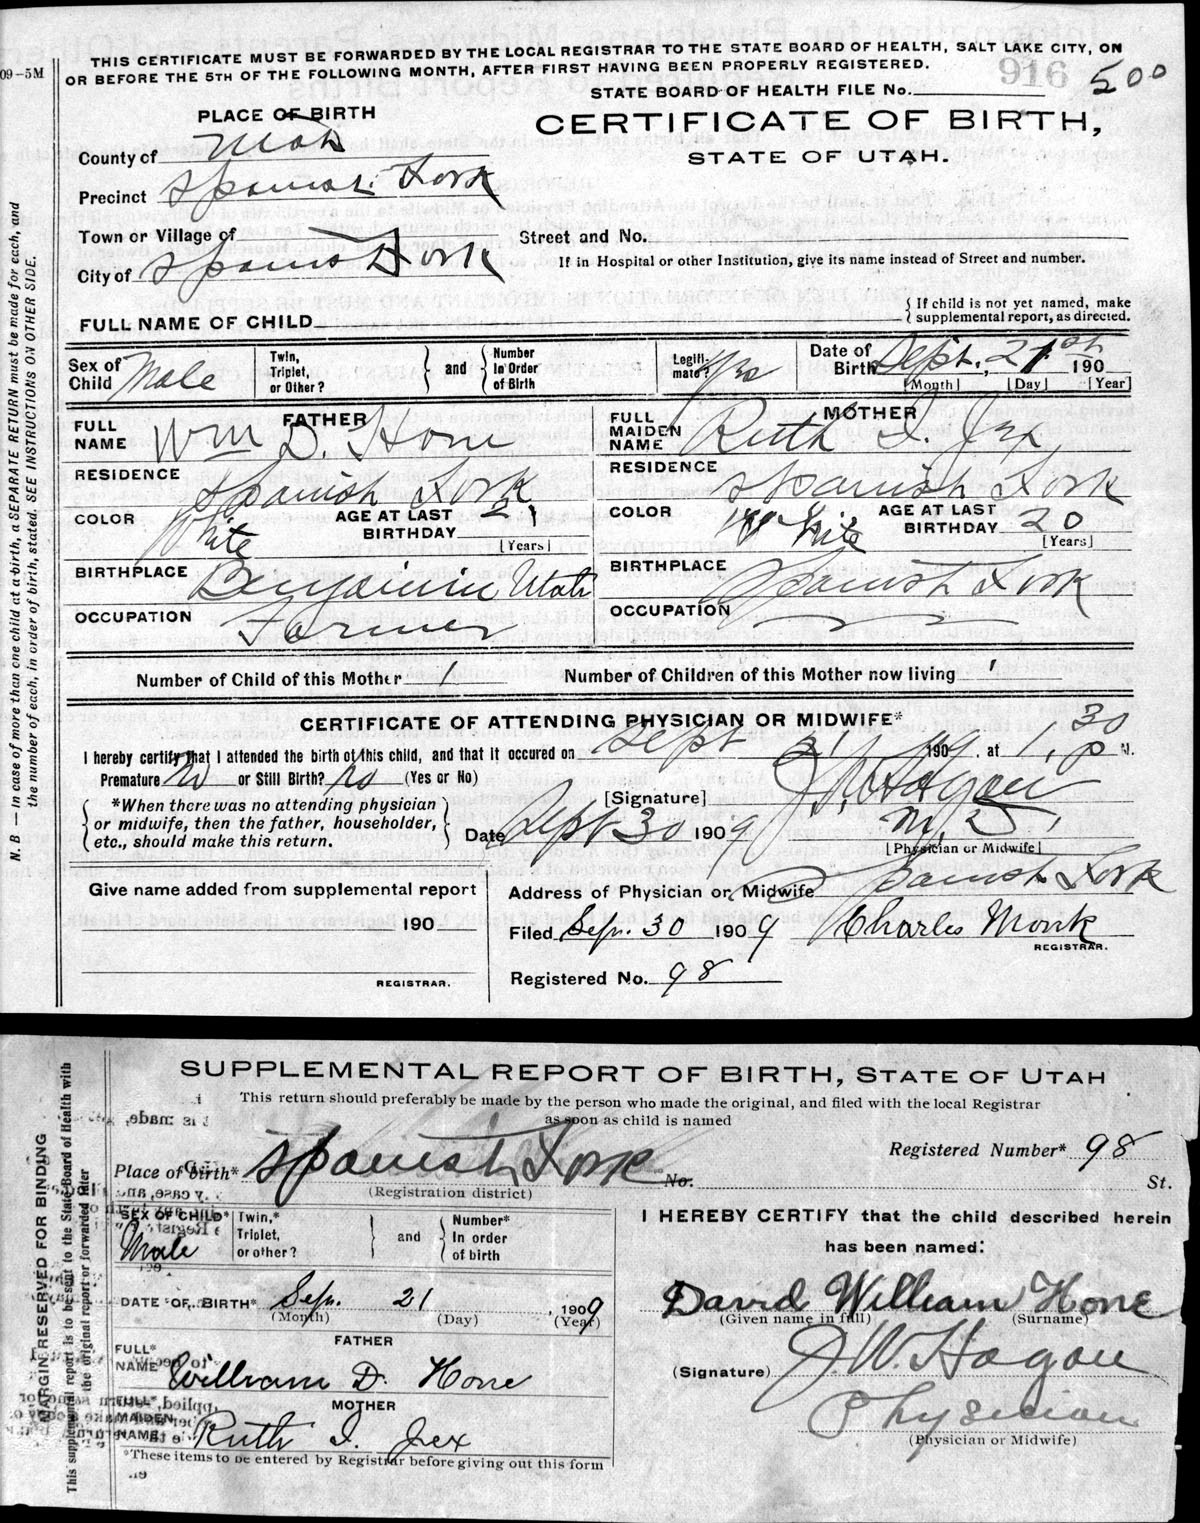 THIS CERTIFICATE MUST BE FORWARDED BY THE LOCAL REGISTRAR TO THE STATE BOARD OF HEALTH, SALT LAKE CITY, ON
09-5M OR BEFORE THE 5TH OF THE FOLLOWING MONTH, AFTER FIRST HAVING BEEN PROPERLY REGISTERED.
STATE BOARD OF HEALTH FILE No. 916 500
PLACE OF BIRTH
CERTIFICATE OF BIRTH,
STATE OF UTAH.
County of Utah
Precinct Spanish Fork
Town or Village of
Street and No.
City of Spanish Fork
If in Hospital or other Institution, give its name instead of Street and number.
FULL NAME OF CHILD
{ If child is not yet named, make supplemental report, as directed.
Sex of Child Male
Twin, Triplet, or Other?
} and {
Number In Order of Birth
Legiti- mate? Yes
Date of Birth Sept. 21st 190
[Month] [Day] [Year]
FATHER
FULL NAME Wm D. Hone
RESIDENCE Spanish Fork
COLOR White
AGE AT LAST BIRTHDAY 21
[Years]
BIRTHPLACE Benjamin Utah
OCCUPATION Farmer
MOTHER
FULL MAIDEN NAME Ruth I. Jex
RESIDENCE Spanish Fork
COLOR White
AGE AT LAST BIRTHDAY 20
[Years]
BIRTHPLACE Spanish Fork
OCCUPATION
Number of Child of this Mother 1
Number of Children of this Mother now living 1
CERTIFICATE OF ATTENDING PHYSICIAN OR MIDWIFE*
I hereby certify that I attended the birth of this child, and that it occured on Sept 21 190 at 1,30 P M.
Premature No or Still Birth? No (Yes or No)
[Signature] J.W. Hagan
{ *When there was no attending physician or midwife, then the father, householder, etc., should make this return. }
Date Sept 30 1909
M.D.
[Physician or Midwife]
Give name added from supplemental report
190
REGISTRAR.
Address of Physician or Midwife Spanish Fork
Filed Sep. 30 1909 Charles Monk
REGISTRAR.
Registered No. 98
N. B — In case of more than one child at a birth, a SEPARATE RETURN must be made for each, and
the number of each, in order of birth, stated. SEE INSTRUCTIONS ON OTHER SIDE.
SUPPLEMENTAL REPORT OF BIRTH, STATE OF UTAH
This return should preferably be made by the person who made the original, and filed with the local Registrar
as soon as child is named
Registered Number* 98
Place of birth* Spanish Fork No. St.
(Registration district)
SEX OF CHILD* Male
Twin,* Triplet, or other?
} and {
Number* In order of birth
DATE OF BIRTH* Sep. 21, 1909
(Month) (Day) (Year)
FATHER
FULL* NAME William D. Hone
MOTHER
FULL* MAIDEN NAME Ruth I. Jex
*These items to be entered by Registrar before giving out this form
I HEREBY CERTIFY that the child described herein
has been named:
David William Hone
(Given name in full) (Surname)
(Signature) J.W. Hagan
Physician
(Physician or Midwife)
MARGIN RESERVED FOR BINDING
This supplemental report is to be sent to the State Board of Health with
the original report or forwarded later